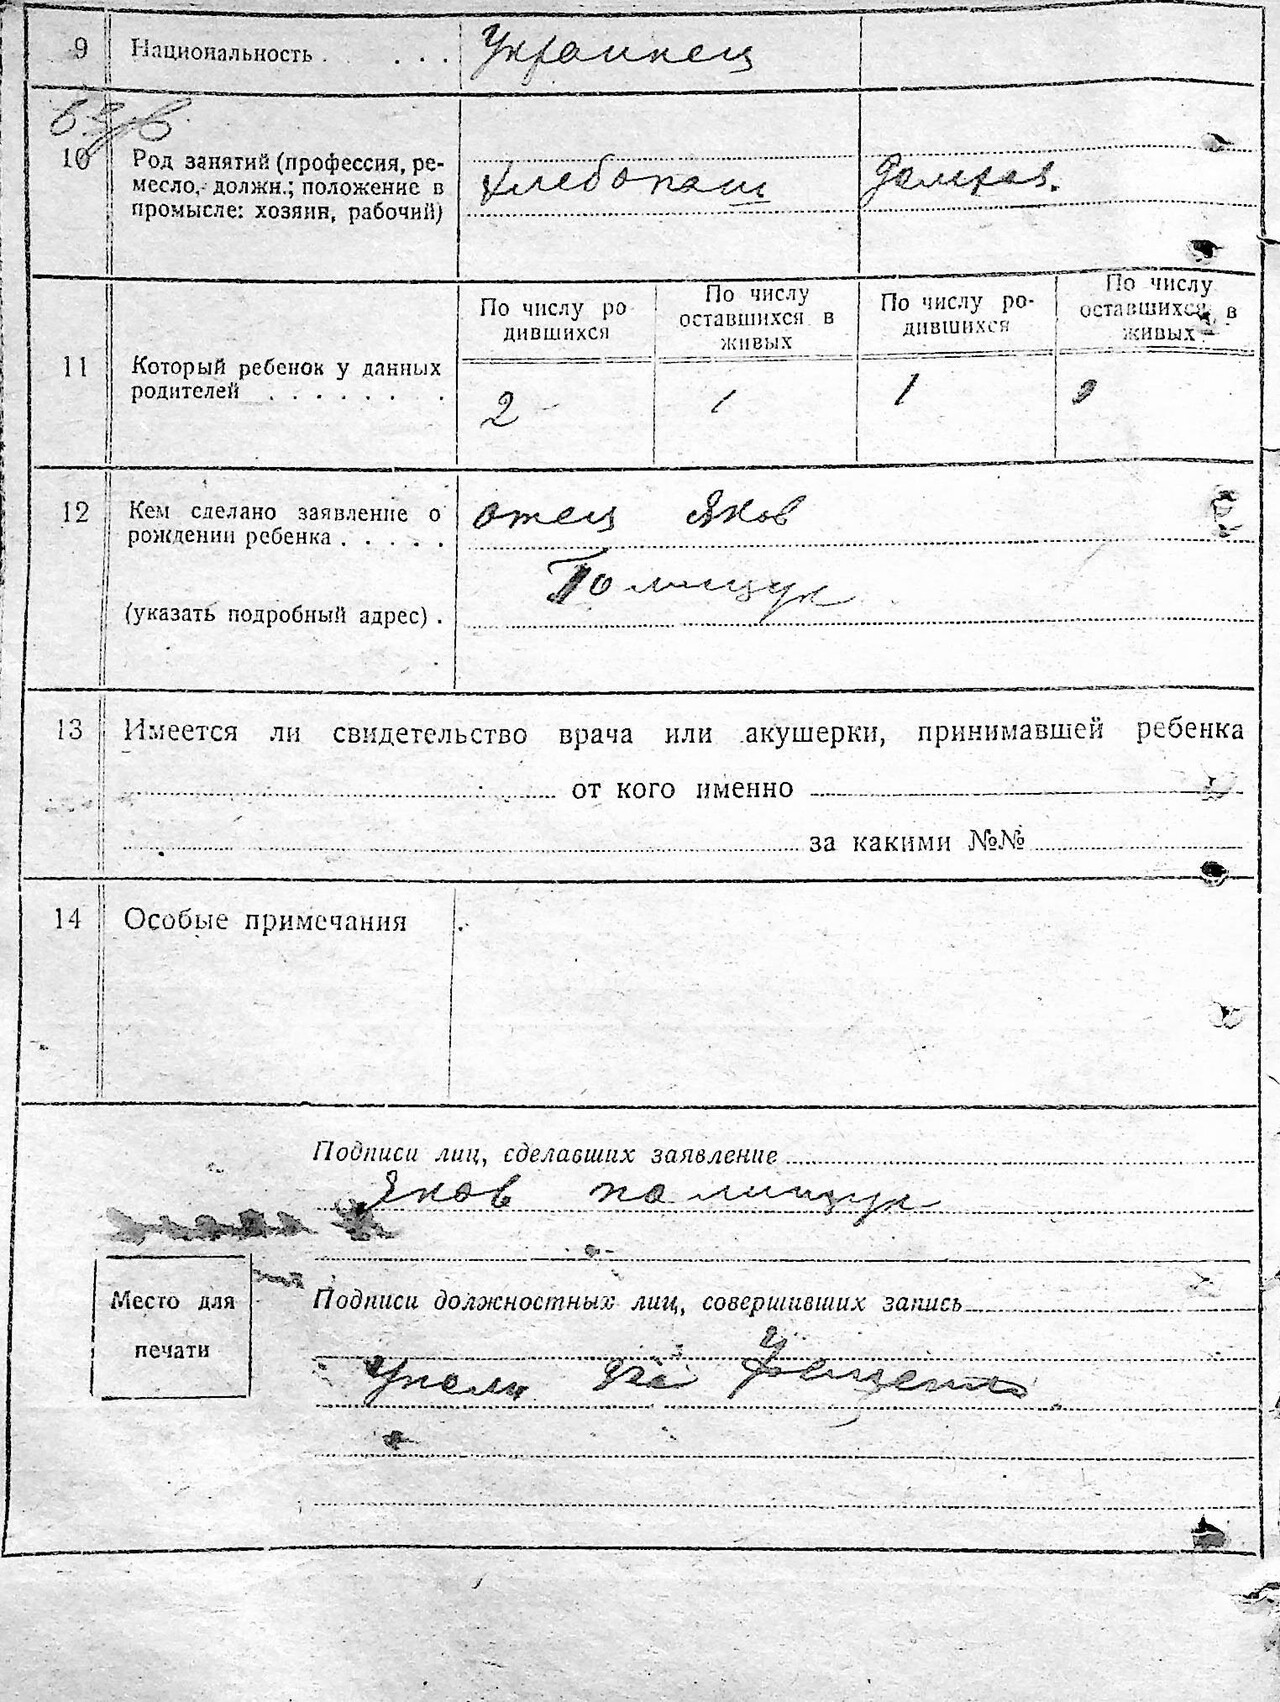 9 Национальность . . . . Украинец
10 Род занятий (профессия, ре-
месло, должн.; положение в
промысле: хозяин, рабочий)
хлебопаш домхоз.
11 Который ребенок у данных
родителей . . . . . . .
По числу ро
дившихся
По числу
оставшихся в
живых
По числу ро-
дившихся
По числу
оставшихся в
живых
2 1 1
12 Кем сделано заявление о
рождении ребенка . . . . .
отец Яков
Полищук
(указать подробный адрес) .
13 Имеется ли свидетельство врача или акушерки, принимавшей ребенка
от кого именно
за какими №№
14 Особые примечания
Подписи лиц, сделавших заявление
Яков полищук
Место для
печати
Подписи должностных лиц, совершивших запись